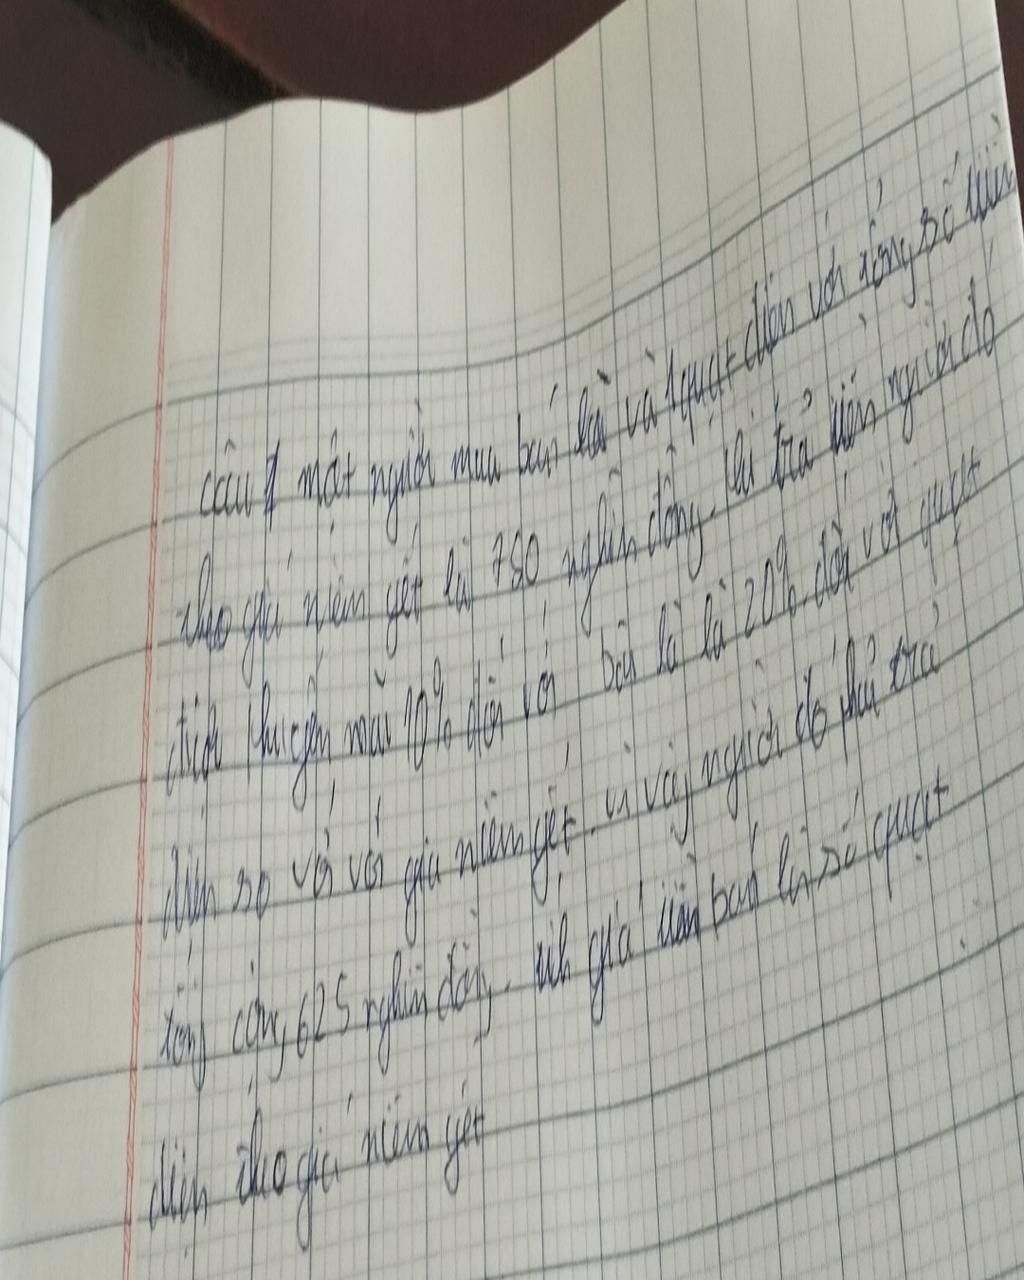 câu 1 một người mua bán là và 1 quạt điện với tổng số tiền
theo giá niêm yết là 750 nghìn đồng. khi trả tiền người đó
được khuyến mãi 10% đối với bàn là là 20% đối với quạt
điện so với với giá niêm yết. vì vậy người đó phải trả
tổng cộng 625 nghìn đồng. tính giá tiền bán là số quạt
điện theo giá niêm yết